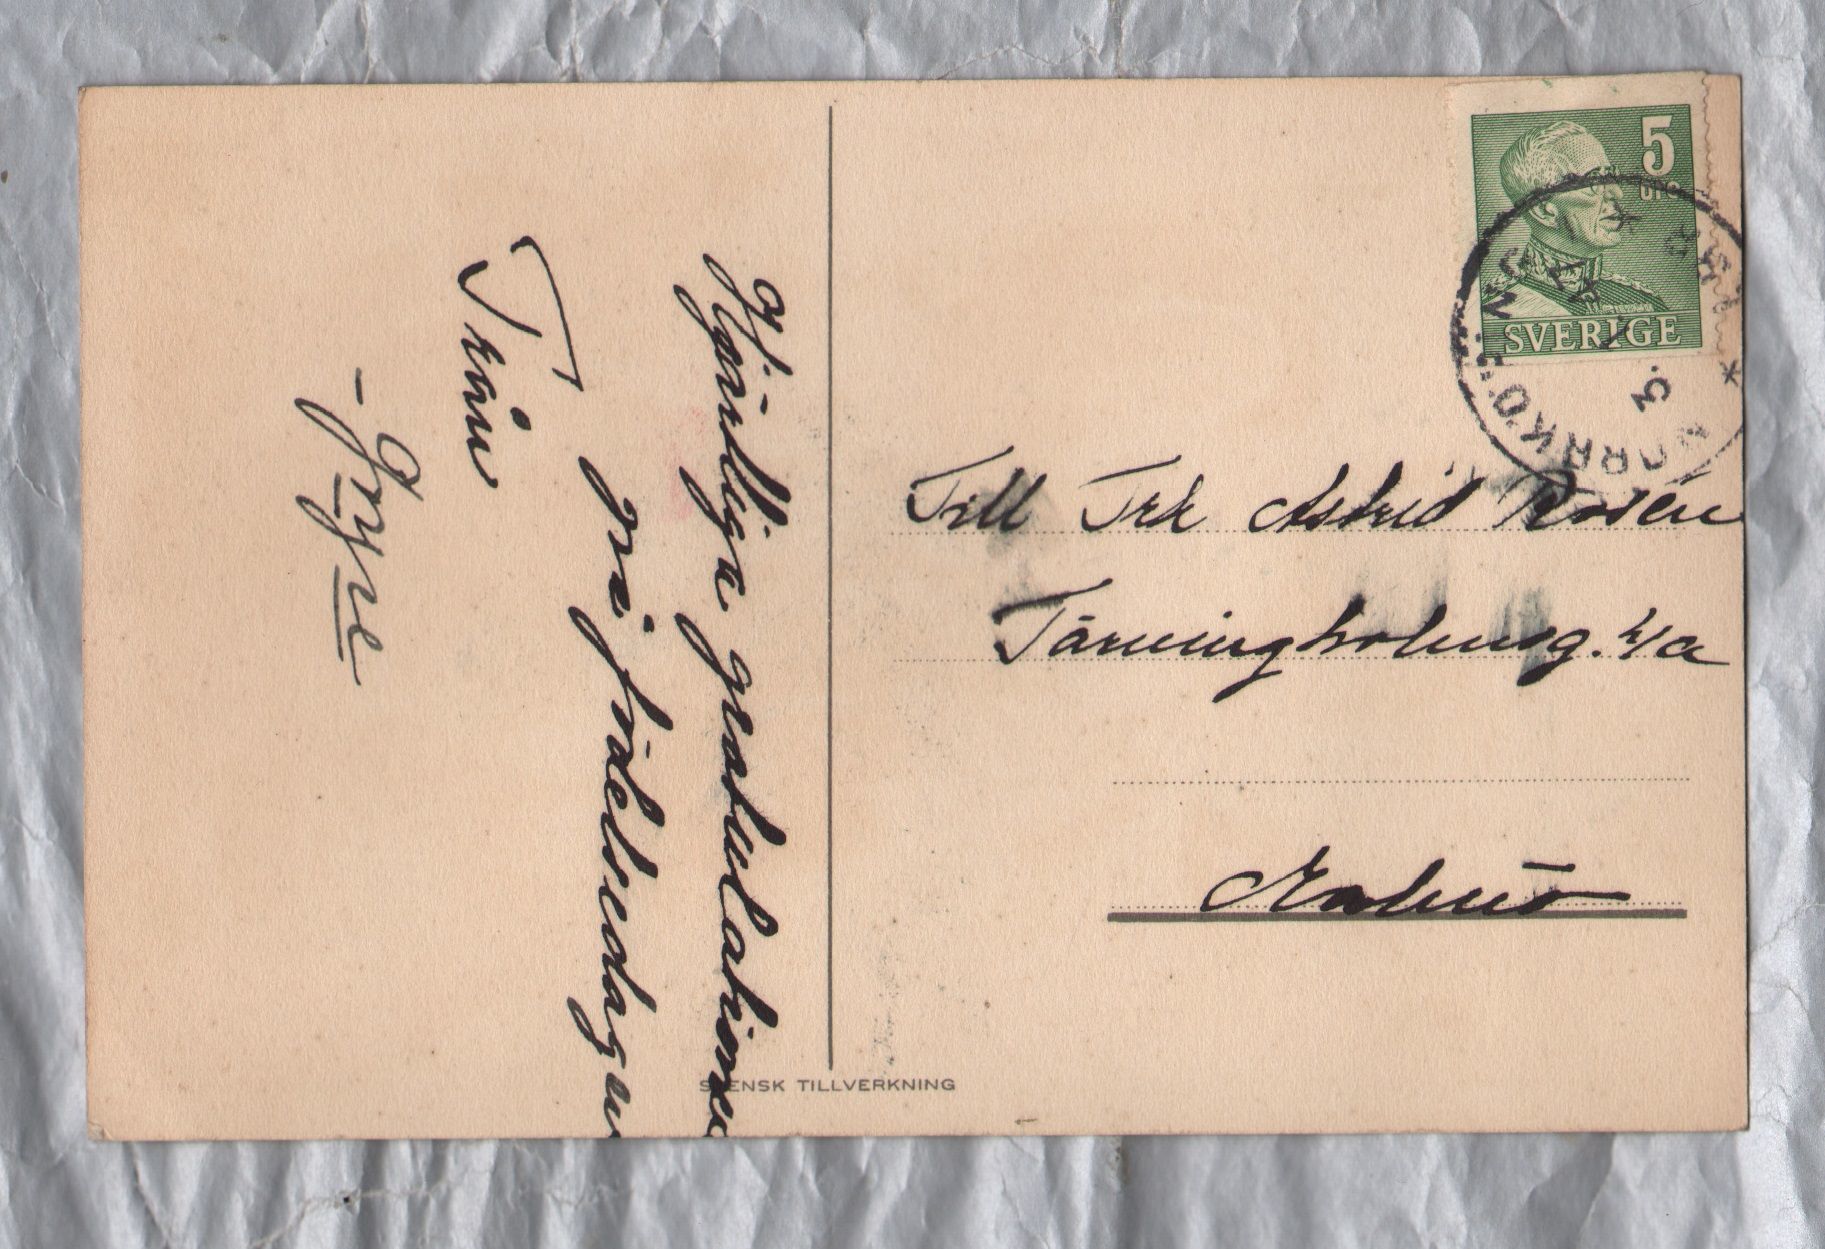 Hjärtliga gratulationer
på födelsedagen
Från
- Yngve
SVENSK TILLVERKNING
5
ÖRE
SVERIGE
NORRKÖPING
3.
Till Frk Astrid Rosén
Tärningholmsg. 4/a
Malmö